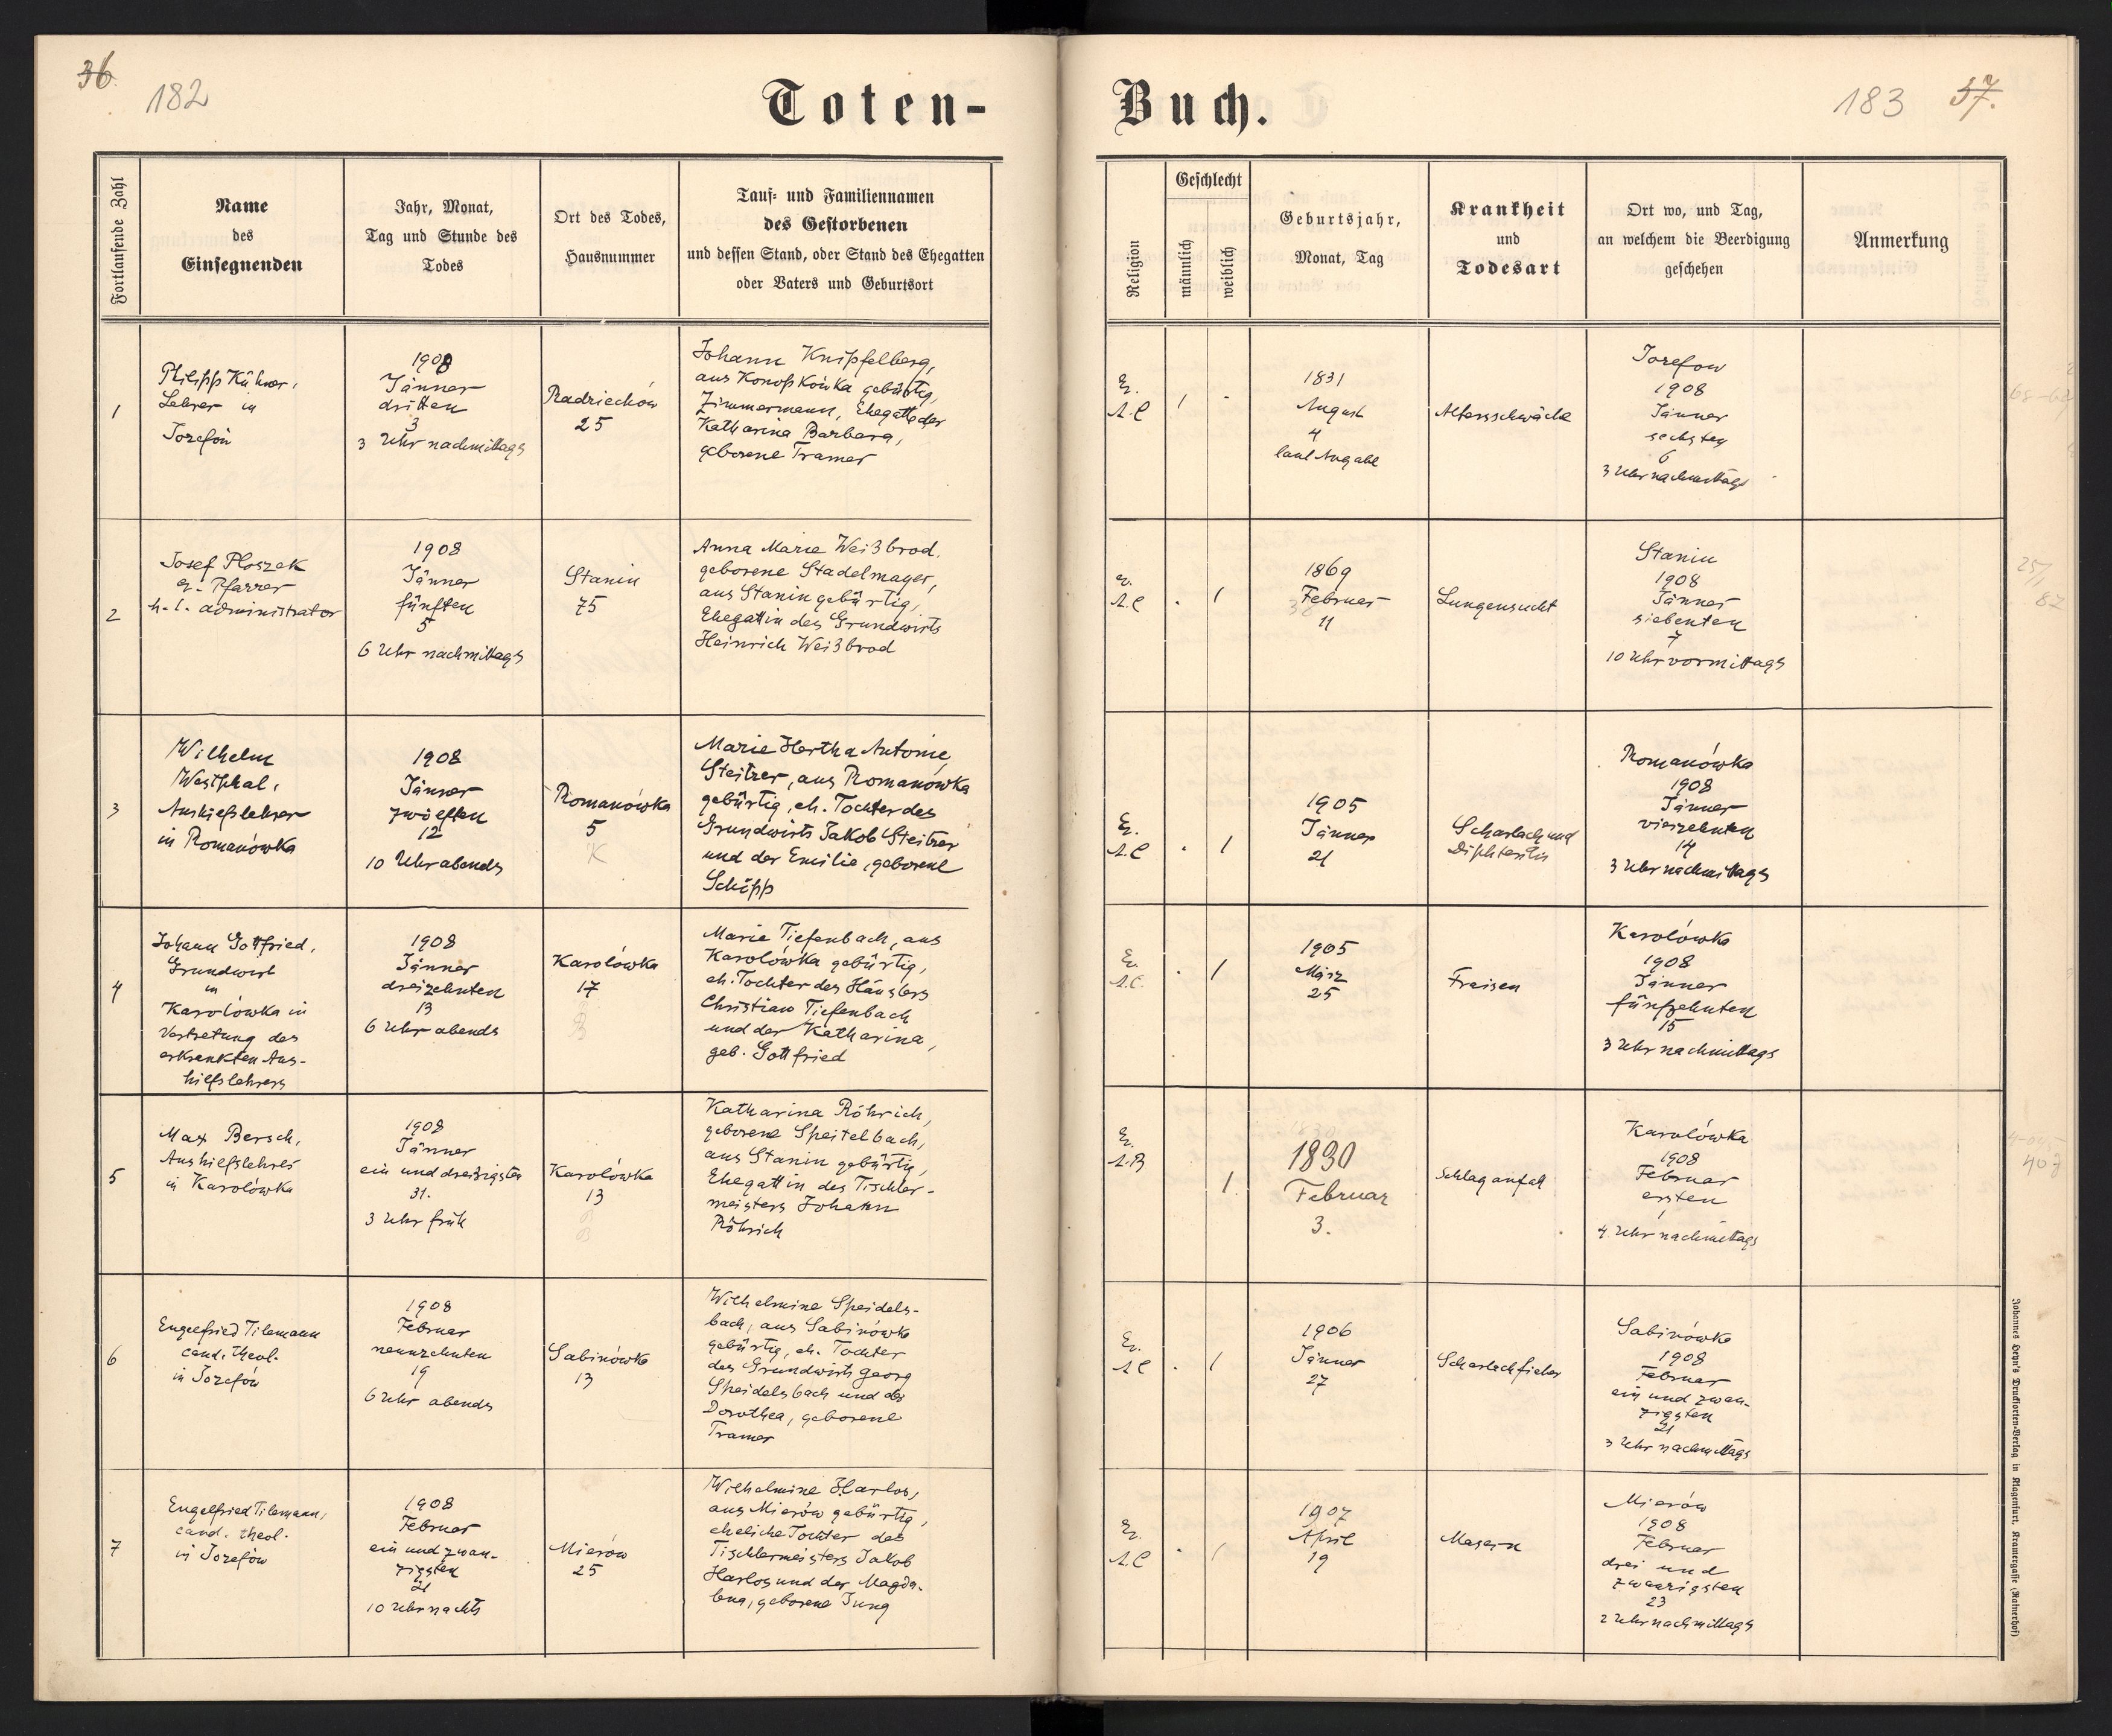 36.
182
Toten-
Buch.
183
37.
Fortlaufende Zahl
Name
des
Einsegnenden
Jahr, Monat,
Tag und Stunde des
Todes
Ort des Todes,
Hausnummer
Tauf- und Familiennamen
des Gestorbenen
und dessen Stand, oder Stand des Ehegatten
oder Vaters und Geburtsort
Religion
Geschlecht
männlich
weiblich
Geburtsjahr,
Monat, Tag
Krankheit
und
Todesart
Ort wo, und Tag,
an welchem die Beerdigung
geschehen
Anmerkung
1
Philipp Kühner,
Lehrer in
Josefów
1908
Jänner
dritten
3
3 Uhr nachmittags
Radziechów
25
Johann Knipfelberg,
aus Konopkówka gebürtig,
Zimmermann, Ehegatte der
Katharina Barbara,
geborene Tramer
Ev.
A.C
1
1831
August
4
laut Angabe
Altersschwäche
Josefow
1908
Jänner
sechsten
6
3 Uhr nachmittags
2
Josef Ploszek
ev. Pfarrer
h. l. administrator
1908
Jänner
fünften
5
6 Uhr nachmittags
Stanin
75
Anna Marie Weißbrod,
geborene Stadelmayer,
aus Stanin gebürtig,
Ehegattin des Grundwirts
Heinrich Weißbrod
ev.
A.C
1
1869
Februar
11
Lungensucht
Stanin
1908
Jänner
siebenten
7
10 Uhr vormittags
25/1
82
3
Wilhelm
Westphal,
Aushilfslehrer
in Romanówka
1908
Jänner
zwölften
12
10 Uhr abends
Romanówka
5
K
Marie Hertha Antonie
Steitzer, aus Romanówka
gebürtig, eh. Tochter des
Grundwirts Jakob Steitzer
und der Emilie, geborene
Schöpp
Ev.
A.C
1
1905
Jänner
21
Scharlach und
Diphteritis
Romanówka
1908
Jänner
vierzehnten
14
3 Uhr nachmittags
4
Johann Gottfried,
Grundwirt
in
Karolówka in
Vertretung des
erkrankten Aus-
hilfslehrers
1908
Jänner
dreizehnten
13
6 Uhr abends
Karolówka
17
B
Marie Tiefenbach, aus
Karolówka gebürtig,
eh. Tochter des Häuslers
Christian Tiefenbach
und der Katharina,
geb. Gottfried
Ev.
A.C.
1
1905
März
25
Fraisen
Karolówka
1908
Jänner
fünfzehnten
15
3 Uhr nachmittags
5
Max Bersch,
Aushilfslehrer
in Karolówka
1908
Jänner
ein und dreißigsten
31.
3 Uhr früh
Karolówka
13
B
Katharina Röhrich,
geborene Speitelbach,
aus Stanin gebürtig,
Ehegattin des Tischler-
meisters Johann
Röhrich
Ev.
A.B
1
1830
Februar
3.
Schlaganfall
Karolówka
1908
Februar
ersten
1
4 Uhr nachmittags
6
Engelfried Tilemann
cand. theol.
in Josefów
1908
Februar
neunzehnten
19
6 Uhr abends
Sabinówka
13
Wilhelmine Speidels-
bach, aus Sabinówka
gebürtig, eh. Tochter
des Grundwirts Georg
Speidelsbach und der
Dorothea, geborene
Tramer
Ev.
A C
1
1906
Jänner
27
Scharlachfieber
Sabinówka
1908
Februar
ein und zwan-
zigsten
21
3 Uhr nachmittags
7
Engelfried Tilemann,
cand. theol.
in Josefów
1908
Februar
ein und zwan-
zigsten
21
10 Uhr nachts
Mierów
25
Wilhelmine Harlos,
aus Mierów gebürtig,
eheliche Tochter des
Tischlermeisters Jakob
Harlos und der Magda-
lena, geborene Jung
Ev.
A.C
1
1907
April
19
Masern
Mierów
1908
Februar
drei und
zwanzigsten
23
2 Uhr nachmittags
Johannes Heyn's Drucksorten-Verlag in Klagenfurt, Kramergasse (Rainerhof)